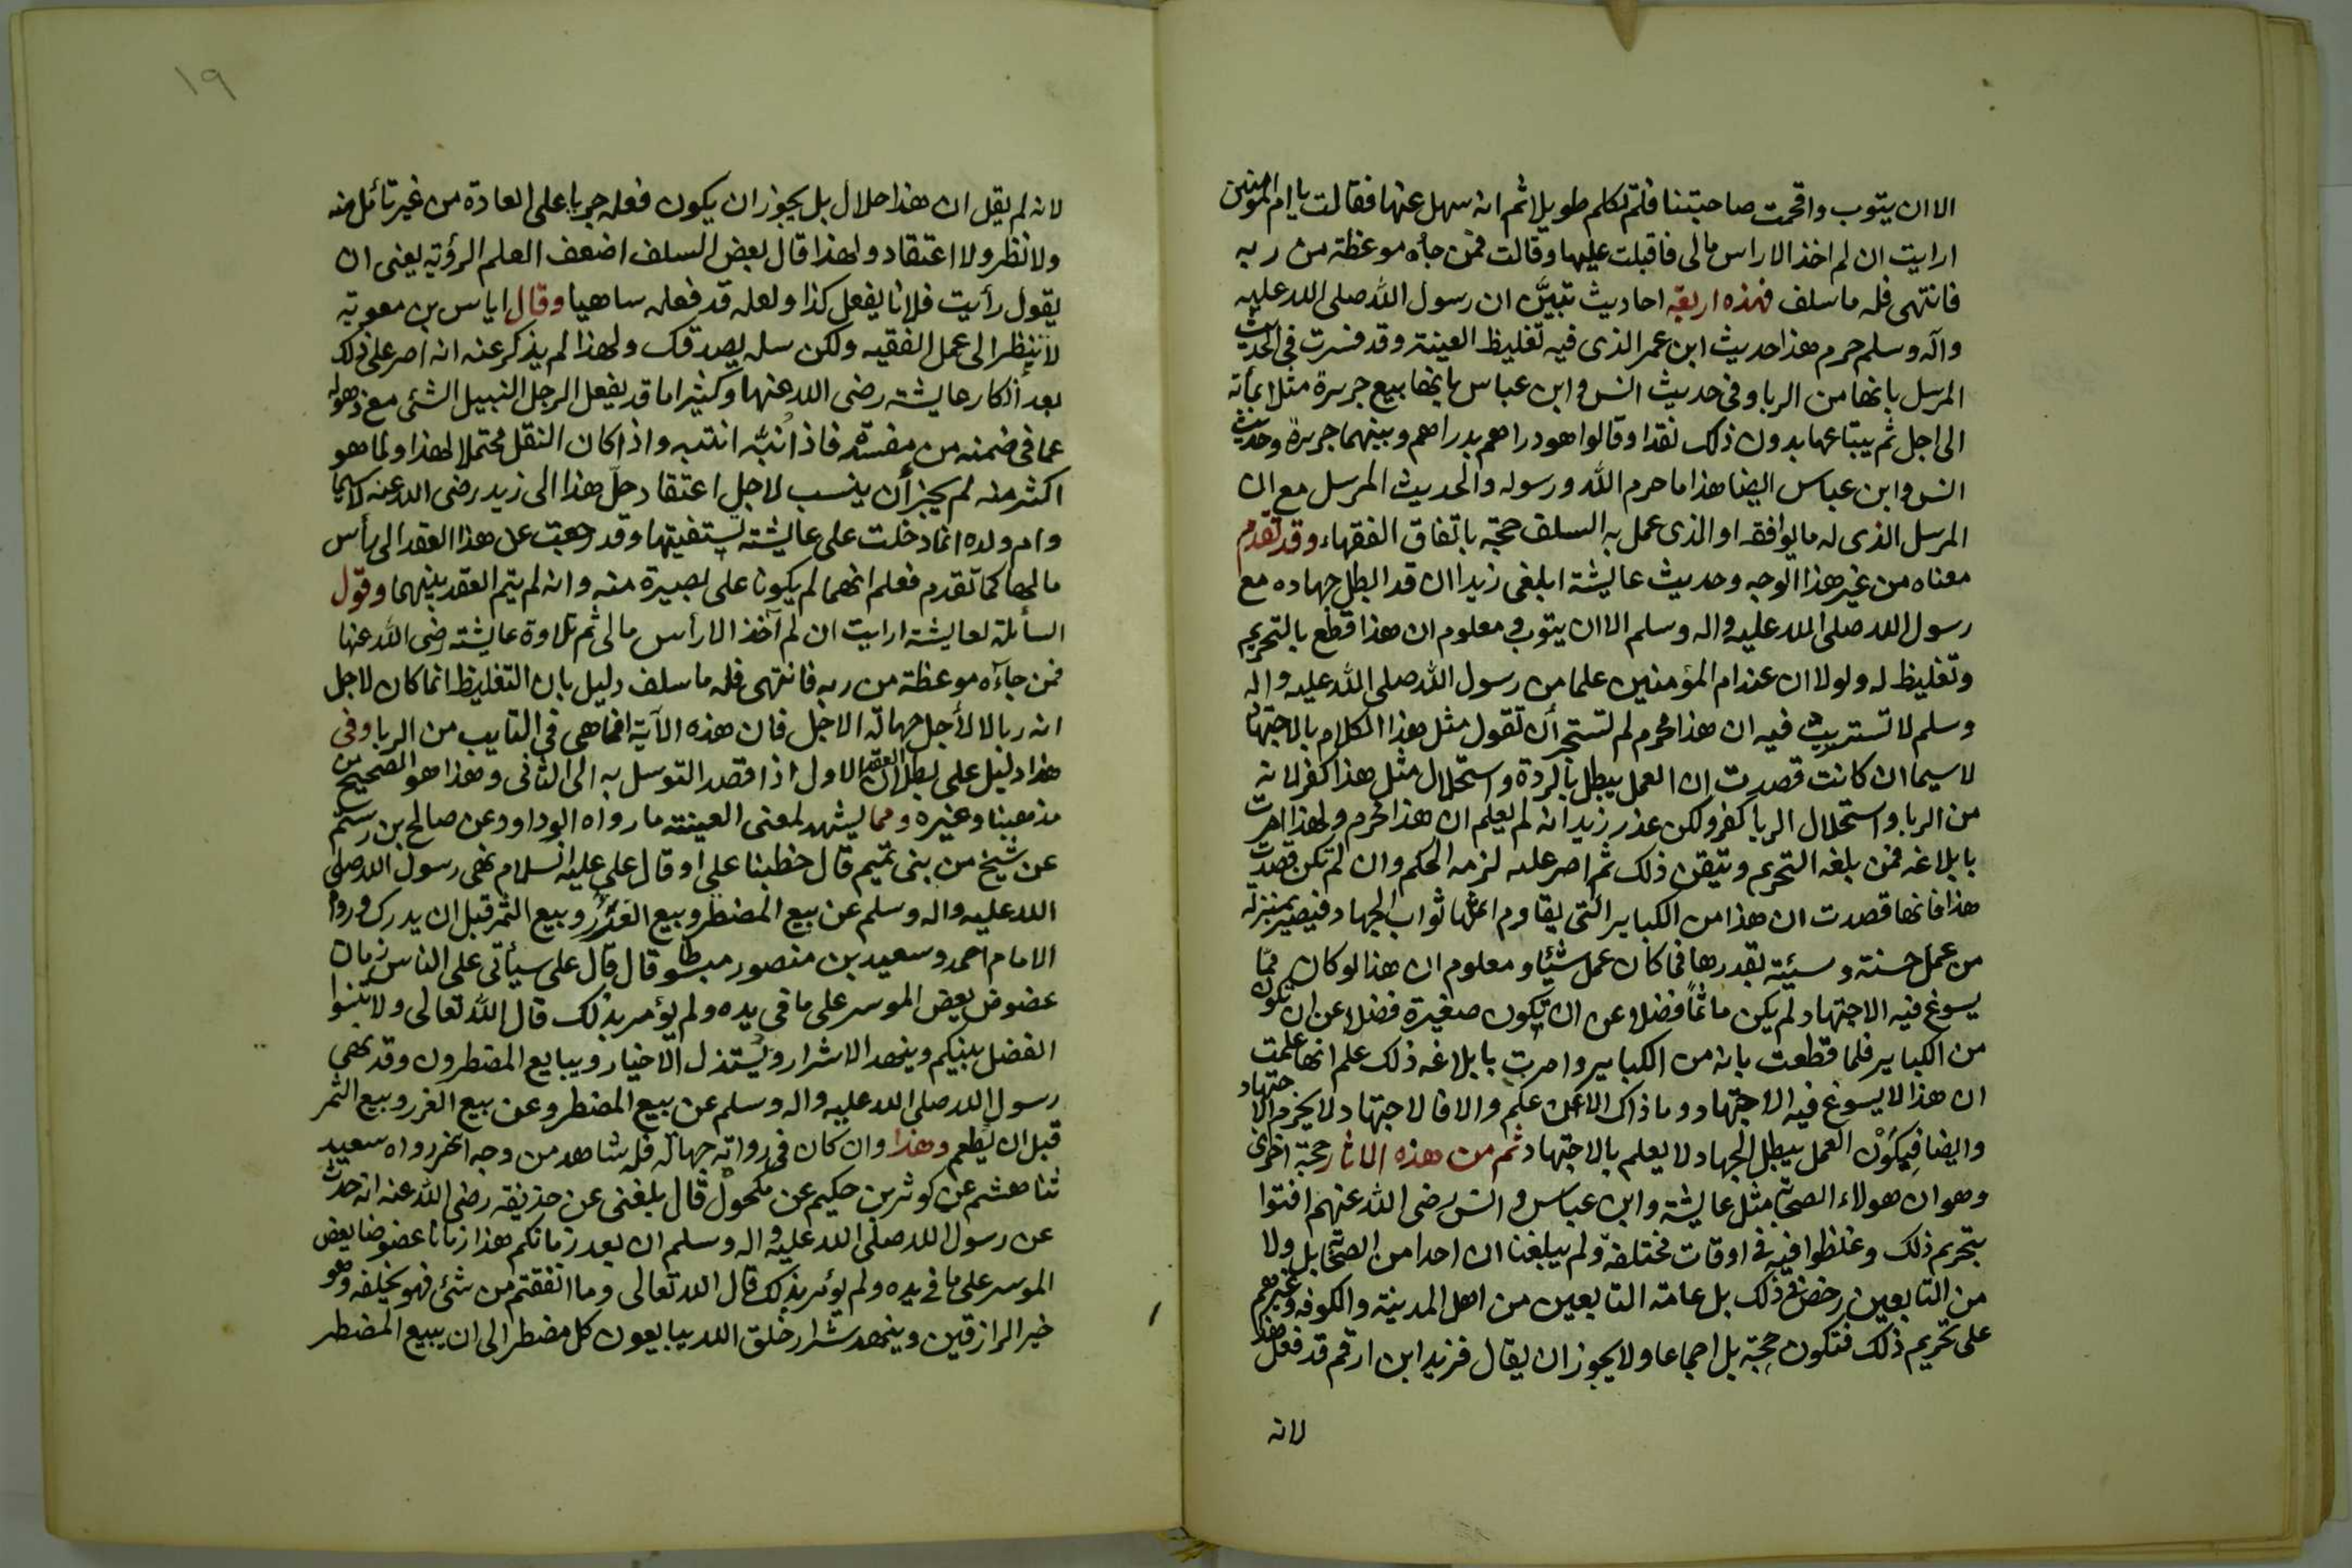 الا ان يتوب واقحمت صاحبتنا فلم تكلم طويلا ثم انه سهل عنها فقالت يا ام المؤمنين
ارايت ان لم اخذ الا راس مالى فاقبلت عليها وقالت فمن جاه موعظة من ربه
فانتهى فله ما سلف فهذه اربعة احاديث تبين ان رسول الله صلى الله عليه
وآله وسلم حرم هذا حديث ابن عمر الذى فيه تغليظ العينة وقد فسرت فى الحديث
المرسل بانها من الربا وفى حديث انس وابن عباس بانها بيع حريرة مثلا بمائة
الى اجل ثم يبتاعها بدون ذلك نقدا وقالوا هو دراهم بدراهم وبينهما حريرة وحديث
انس وابن عباس ايضا هذا ما حرم الله ورسوله والحديث المرسل مع ان
المرسل الذى له ما يوافقه او الذى عمل به السلف حجة باتفاق الفقهاء وقد تقدم
معناه من غير هذا الوجه وحديث عايشة ابلغى زيدا ان قد ابطل جهاده مع
رسول الله صلى الله عليه واله وسلم الا ان يتوب ومعلوم ان هذا قطع بالتحريم
وتغليظ له ولولا ان عند ام المؤمنين علما من رسول الله صلى الله عليه واله
وسلم لا تستريب فيه ان هذا محرم لم تستجر أن تقول مثل هذا الكلام بالاجتهاد
لا سيما ان كانت قصدت ان العمل يبطل بالردة واستحلال مثل هذا كفر لانه
من الربا واستحلال الربا كفر ولكن عذر زيد انه لم يعلم ان هذا محرم ولهذا امرت
بابلاغه فمن بلغه التحريم وتيقن ذلك ثم اصر عليه لزمه الحكم وان لم تكن قصدت
هذا فانها قصدت ان هذا من الكباير التى يقاوم اثمها ثواب الجهاد فيصير بمنزلة
من عمل حسنة وسيئة بقدرها فما كان عمل شئيا ومعلوم ان هذا لو كان ممّا
يسوغ فيه الاجتهاد لم يكن ماثمًا فضلا عن ان يكون صغيرة فضلا عن ان تكون
من الكباير فلما قطعت بانه من الكباير وامرت بابلاغه ذلك علم انها علمت
ان هذا لا يسوغ فيه الاجتهاد وما ذاك الا عن علم والا فالاجتهاد لا يحرم الاجتهاد
وايضا فيكَوْن العمل يبطل الجهاد لا يعلم بالاجتهاد ثم من هذه الاثار حجة اخرى
وهو ان هولاء الصحابة مثل عايشة وابن عباس وانس رضى الله عنهم افتوا
بتحريم ذلك وغلظوا فيه فى اوقات مختلفة ولم يبلغنا ان احدا من الصحابة بل ولا
من التابعين رخص فى ذلك بل عامة التابعين من اهل المدينة والكوفه وغيرهم
على تحريم ذلك فتكون حجة بل اجماعا ولا يجوز ان يقال فزيد ابن ارقم قد فعل هذا
لانه
١٩
لانه لم يقل ان هذا حلال بل يجوز ان يكون فعله جريا على العادة من غير تائمل منه
ولا نظر ولا اعتقاد ولهذا قال بعض السلف اضعف العلم الرؤية يعنى ان
يقول رأيت فلانا يفعل كذا ولعله قد فعله ساهيا وقال اياس بن معوية
لا تنظر الى عمل الفقيه ولكن سله يصدقك ولهذا لم يذكر عنه انه اصر على ذلك
بعد انكار عايشة رضى الله عنها وكثيرا ما قد يفعل الرجل النبيل الشئى مع ذهوله
عما فى ضمنه من مفسدة فاذا نُبّه انتبه واذا كان النقل محتملا لهذا ولما هو
اكثر منه لم يجز أن ينسب لاجل اعتقاد حلّ هذا الى زيد رضى الله عنه لا سيما
وام ولده انما دخلت على عايشة يستفتيها وقد رجعت عن هذا العقد الى رأس
مالها كما تقدم فعلم انهما لم يكونا على بصيرة منه وانه لم يتم العقد بينهما وقول
السائلة لعايشة ارايت ان لم آخذ الا رأس مالى ثم تلاوة عايشة رضى الله عنها
فمن جآءه موعظة من ربه فانتهى فله ما سلف دليل بان التغليظ انما كان لاجل
انه ربا لا لأجل جهالة الاجل فان هذه الآية انما هى فى التايب من الربا وفى
هذا دليل على بطلان العقد الاول اذا قصد التوسل به الى الثانى وهذا هو الصحيح من
مذهبنا وغيره ومما يشهد لمعنى العينة ما رواه ابو داود عن صالح بن رستم
عن شيخ من بنى تميم قال خطبنا على او قال على عليه السلام نهى رسول الله صلى
الله عليه واله وسلم عن بيع المضطر وبيع الغَرَر وبيع الثمر قبل ان يدرك ورواه
الامام احمد وسعيد بن منصور مبسوطا قال قال على سيأتى على الناس زمان
عضوض يعض الموسر على ما فى يده ولم يؤمر بذلك قال الله تعالى ولا تنسوا
الفضل بينكم وينهد الاشرار ويُستذل الاخيار ويبايع المضطرون وقد نهى
رسول الله صلى الله عليه واله وسلم عن بيع المضطر وعن بيع الغرر وبيع الثمر
قبل ان يطعم وهذا وان كان فى رواته جهالة فله شاهد من وجه اخر رواه سعيد
ثنا هشيم عن كوثر بن حكيم عن مكحول قال بلغنى عن حذيفة رضى الله عنه انه حدث
عن رسول الله صلى الله عليه واله وسلم ان بعد زمانكم هذا زمانا عضوضا يعض
الموسر على ما فى يده ولم يؤمر بذلك قال الله تعالى وما انفقتم من شئى فهو يخلفه وهو
خير الرازقين وينهد شرار خلق الله يبايعون كل مضطر الى ان يبيع المضطر